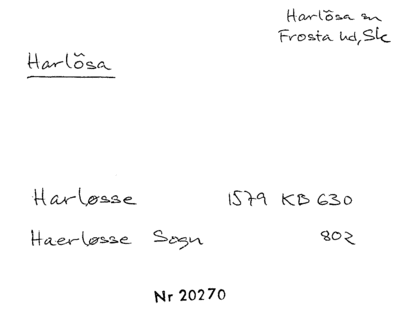 Harlösa sn
Frosta hd, Sk
Harlösa
Harløsse 1579 KB 630
Haerløsse Sogn 802
Nr 20270